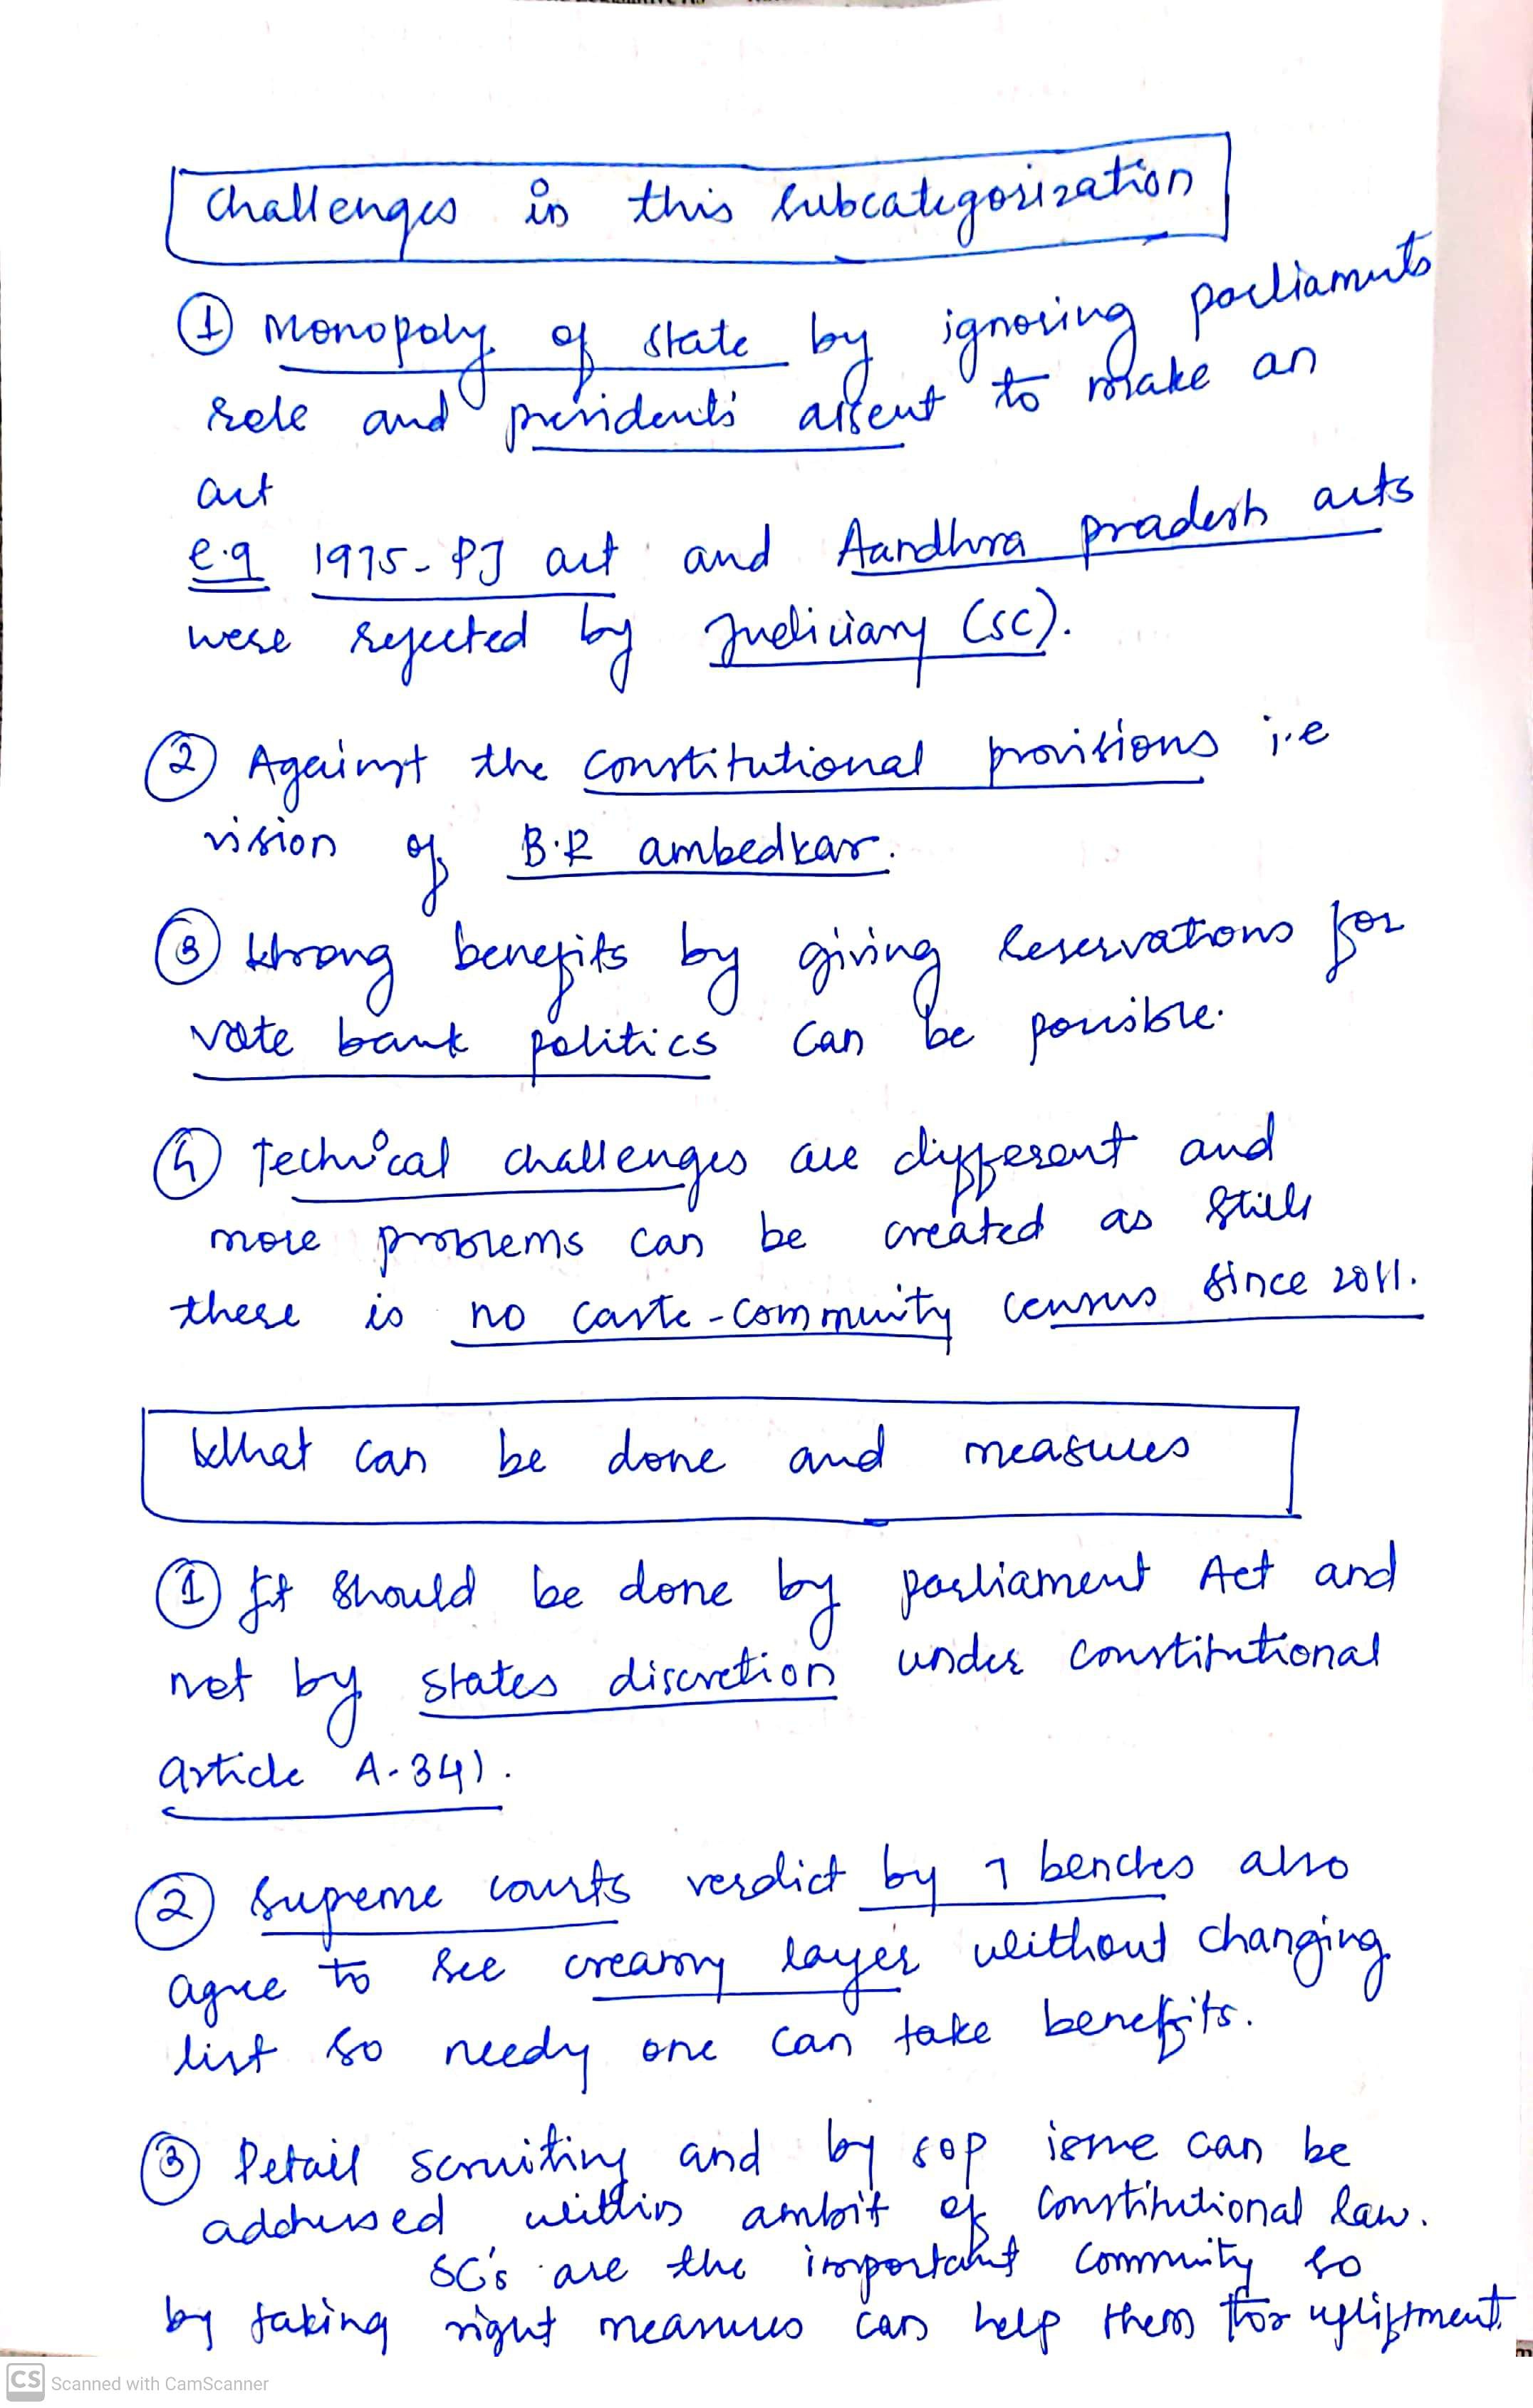 Challenges in this subcategorization
① Monopoly of state by ignoring parliaments
role and presidents' assent to make an
act
e.g 1975-PJ act and Aandhra pradesh acts
were rejected by Judiciary (SC).
② Against the constitutional provisions i.e
vision of B.R ambedkar.
③ Wrong benefits by giving reservations for
vote bank politics can be possible.
④ Technical challenges are different and
more problems can be created as still
there is no caste-community census since 2011.
What can be done and measures
① It should be done by parliament Act and
not by states discretion under constitutional
article A-341.
② Supreme courts verdict by 7 benches also
agree to see creamy layer without changing
list so needy one can take benefits.
③ Detail scruiting and by sop issue can be
addressed within ambit of Constitutional law.
SC's are the important community so
by taking right measures can help them for upliftment.
CS Scanned with CamScanner